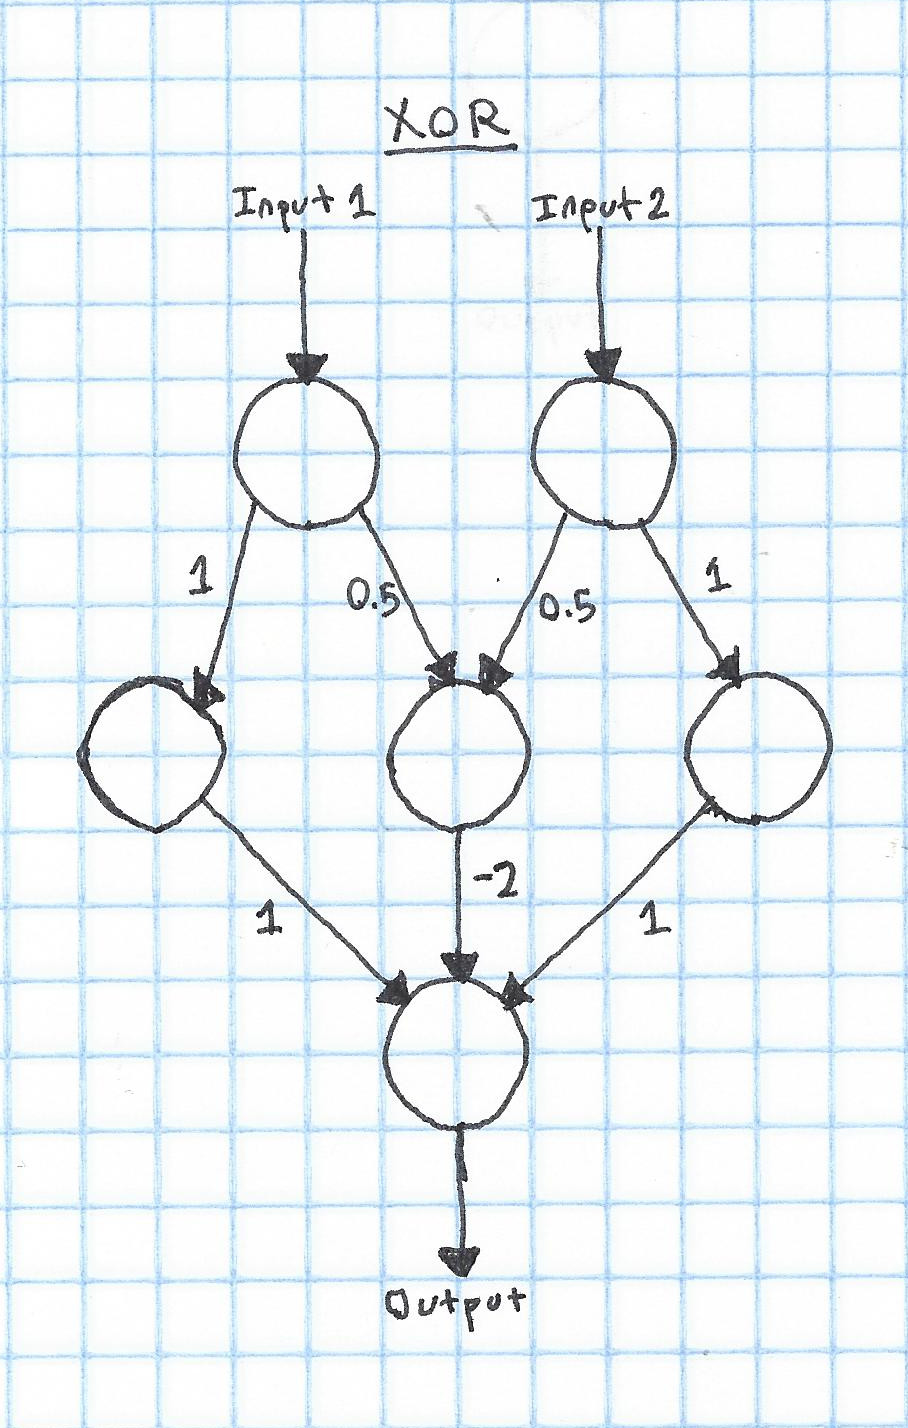 XOR
Input 1 Input 2
1 0.5 0.5 1
-2
1 1
Output